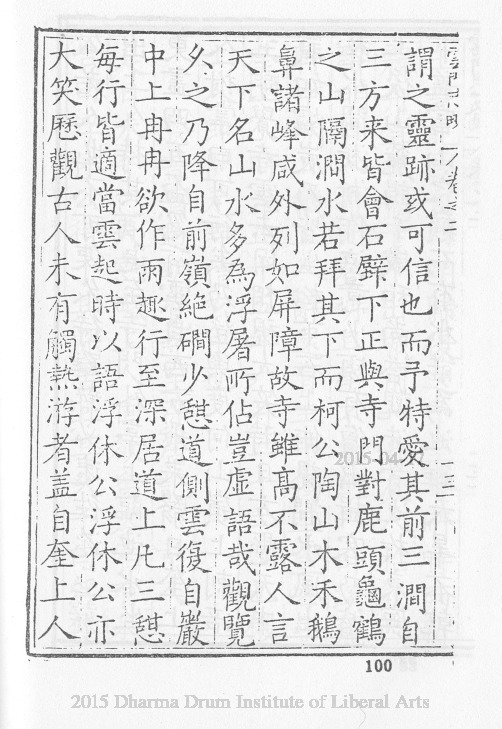 雲門志略 卷之二
謂之靈跡或可信也而予特愛其前三澗自
三方来皆會石壁下正與寺門對鹿頭龜鶴
之山隔澗水若拜其下而柯公陶山木禾鵝
鼻諸峰咸外列如屏障故寺雖高不露人言
天下名山水多為浮屠所佔豈虛語哉觀覽
久之乃降自前嶺絶磵少憇道側雲復自巖
中上冉冉欲作雨趣行至深居道上凡三憇
每行皆適當雲起時以語浮休公浮休公亦
大笑歷觀古人未有觸熱游者盖自奎上人
100
2015-04-
2015 Dharma Drum Institute of Liberal Arts